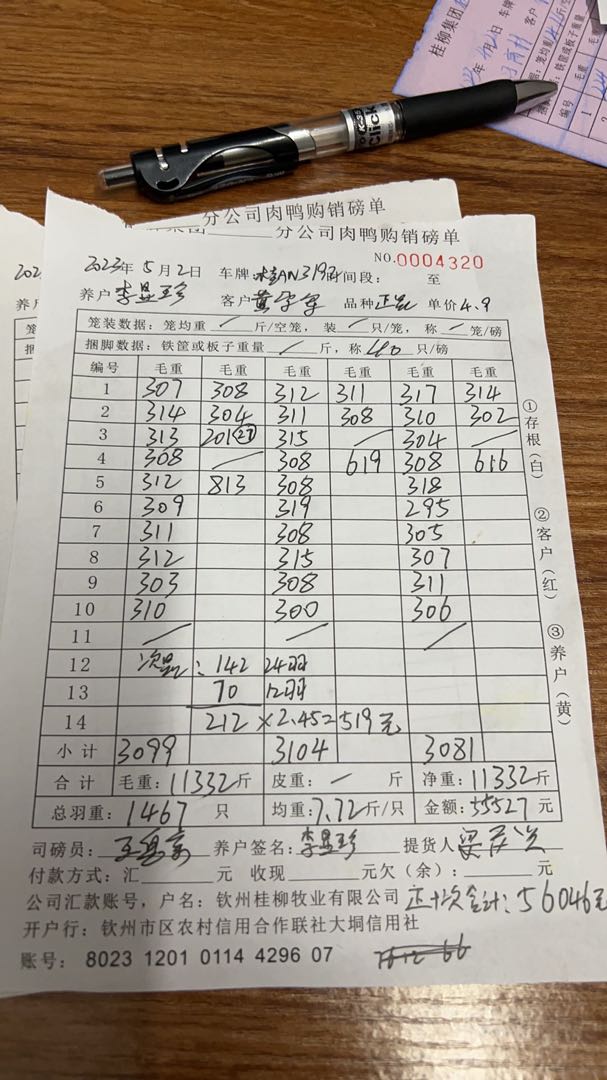 桂柳集团
编号 毛重
KISS
Click
分公司肉鸭购销磅单
分公司肉鸭购销磅单
NO.0004320
2023年 5月2日 车牌 桂AN319 时间段: 至
养户 李显珍 客户 品种 正品 单价 4.9
笼装数据: 笼均重 / 斤/空笼, 装 / 只/笼, 称 / 笼/磅
捆脚数据: 铁筐或板子重量 / 斤, 称 40 只/磅
编号 毛重 毛重 毛重 毛重 毛重 毛重
1 307 308 312 311 317 314
2 314 304 311 308 310 302
3 313 201(27) 315 / 304 /
4 308 / 308 619 308 616
5 312 813 308 318
6 309 319 295
7 311 308 305
8 312 315 307
9 303 308 311
10 310 300 306
11 / / /
12 次品: 142 24羽
13 70 12羽
14 212 × 2.45=519元
小计 3099 3104 3081
合计 毛重: 11332斤 皮重: / 斤 净重: 11332斤
总羽重: 1467 只 均重: 7.72斤/只 金额: 55527 元
司磅员: 养户签名: 李显珍 提货人
付款方式: 汇 元 收现 元欠(余): 元
公司汇款账号, 户名: 钦州桂柳牧业有限公司 正+次合计: 56046元
开户行: 钦州市区农村信用合作联社大垌信用社
账号: 8023 1201 0114 4296 07
①存根(白)
②客户(红)
③养户(黄)